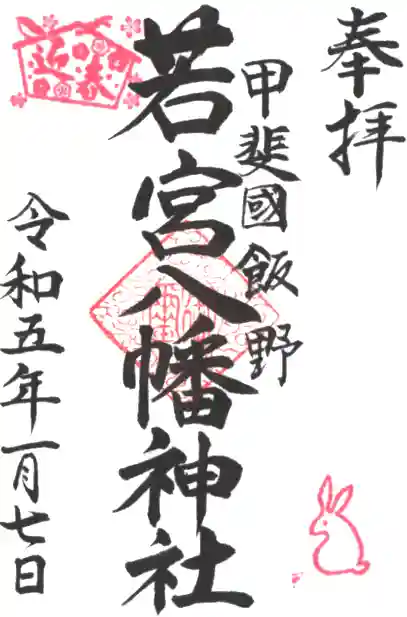 奉拝
甲斐國飯野
若宮八幡神社
迎春
令和五年一月七日